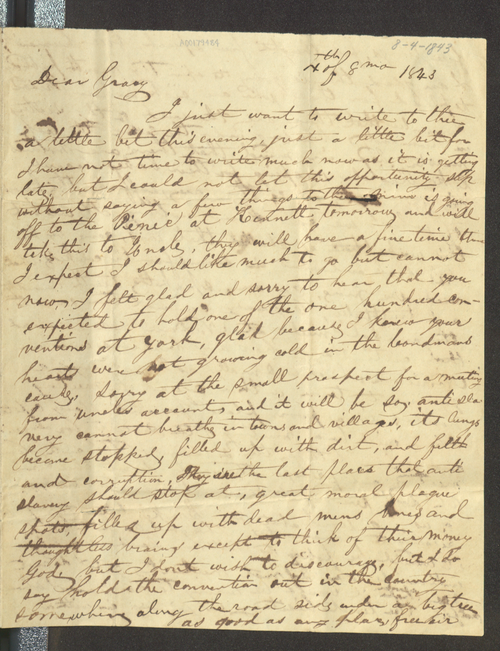 8-4-1843
4th of 8 mo 1843
Dear Gracy
I just want to write to thee
a little bit this evening, just a little bit for
I have not time to write much now as it is getting
late, but I could not let this opportunity slip
without saying a few things to thee is going
off to the Picnic at Kennett tomorrow and will
take this to Uncle, they will have a fine time there
I expect I should like much to go but cannot
now, I felt glad and sorry to hear that you
expected to hold one of the one hundred con-
ventions at York, glad because I knew your
hearts were not growing cold in the bondmans
cause, sorry at the small prospect for a meeting
from uncles account, and it will be so, anti sla-
very cannot breathe in towns and villages, its lungs
become stopped, filled up with dirt, and filth
and corruption, They are the last places that anti
slavery should stop at, great moral plague
spots, filled up with dead mens bones and
thoughtless beings except to think of their money
God, but I dont wish to discourage, but I do
say hold the convention out in the country
somewhere along the road side under a big tree
as good as any place, free air